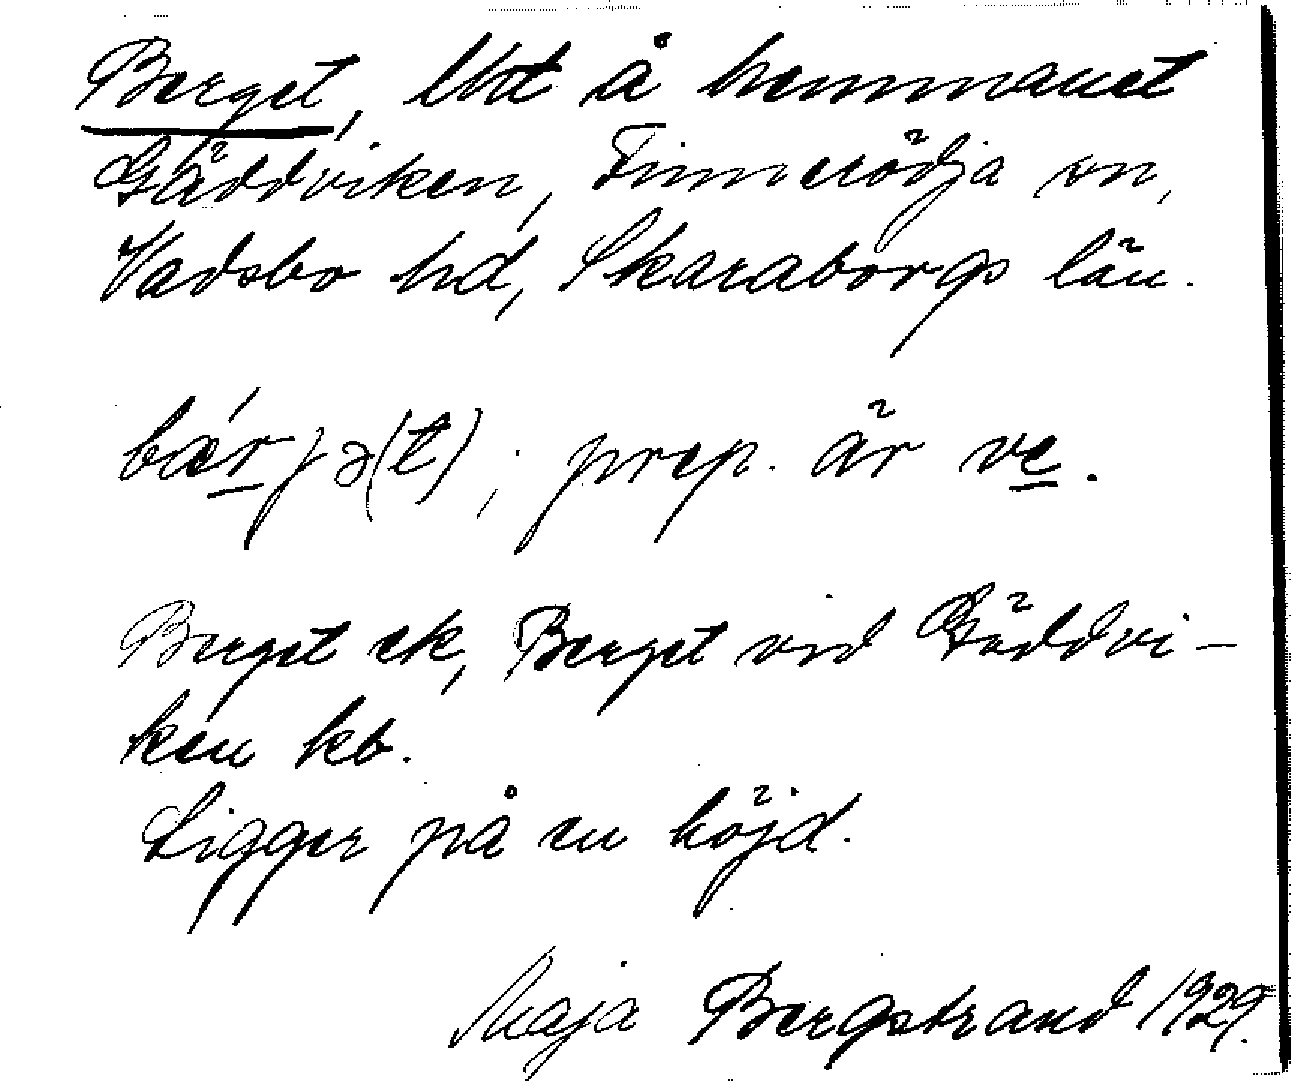 Berget, Utt å hemmanet
Gäddviken, Finnerödja sn,
Vadsbo hd, Skaraborgs län.
bæŕjə(t); prep. är ve.
Berget ek, Berget vid Gäddvi-
ken kb.
Ligger på en höjd.
Maja Bergstrand 1929.